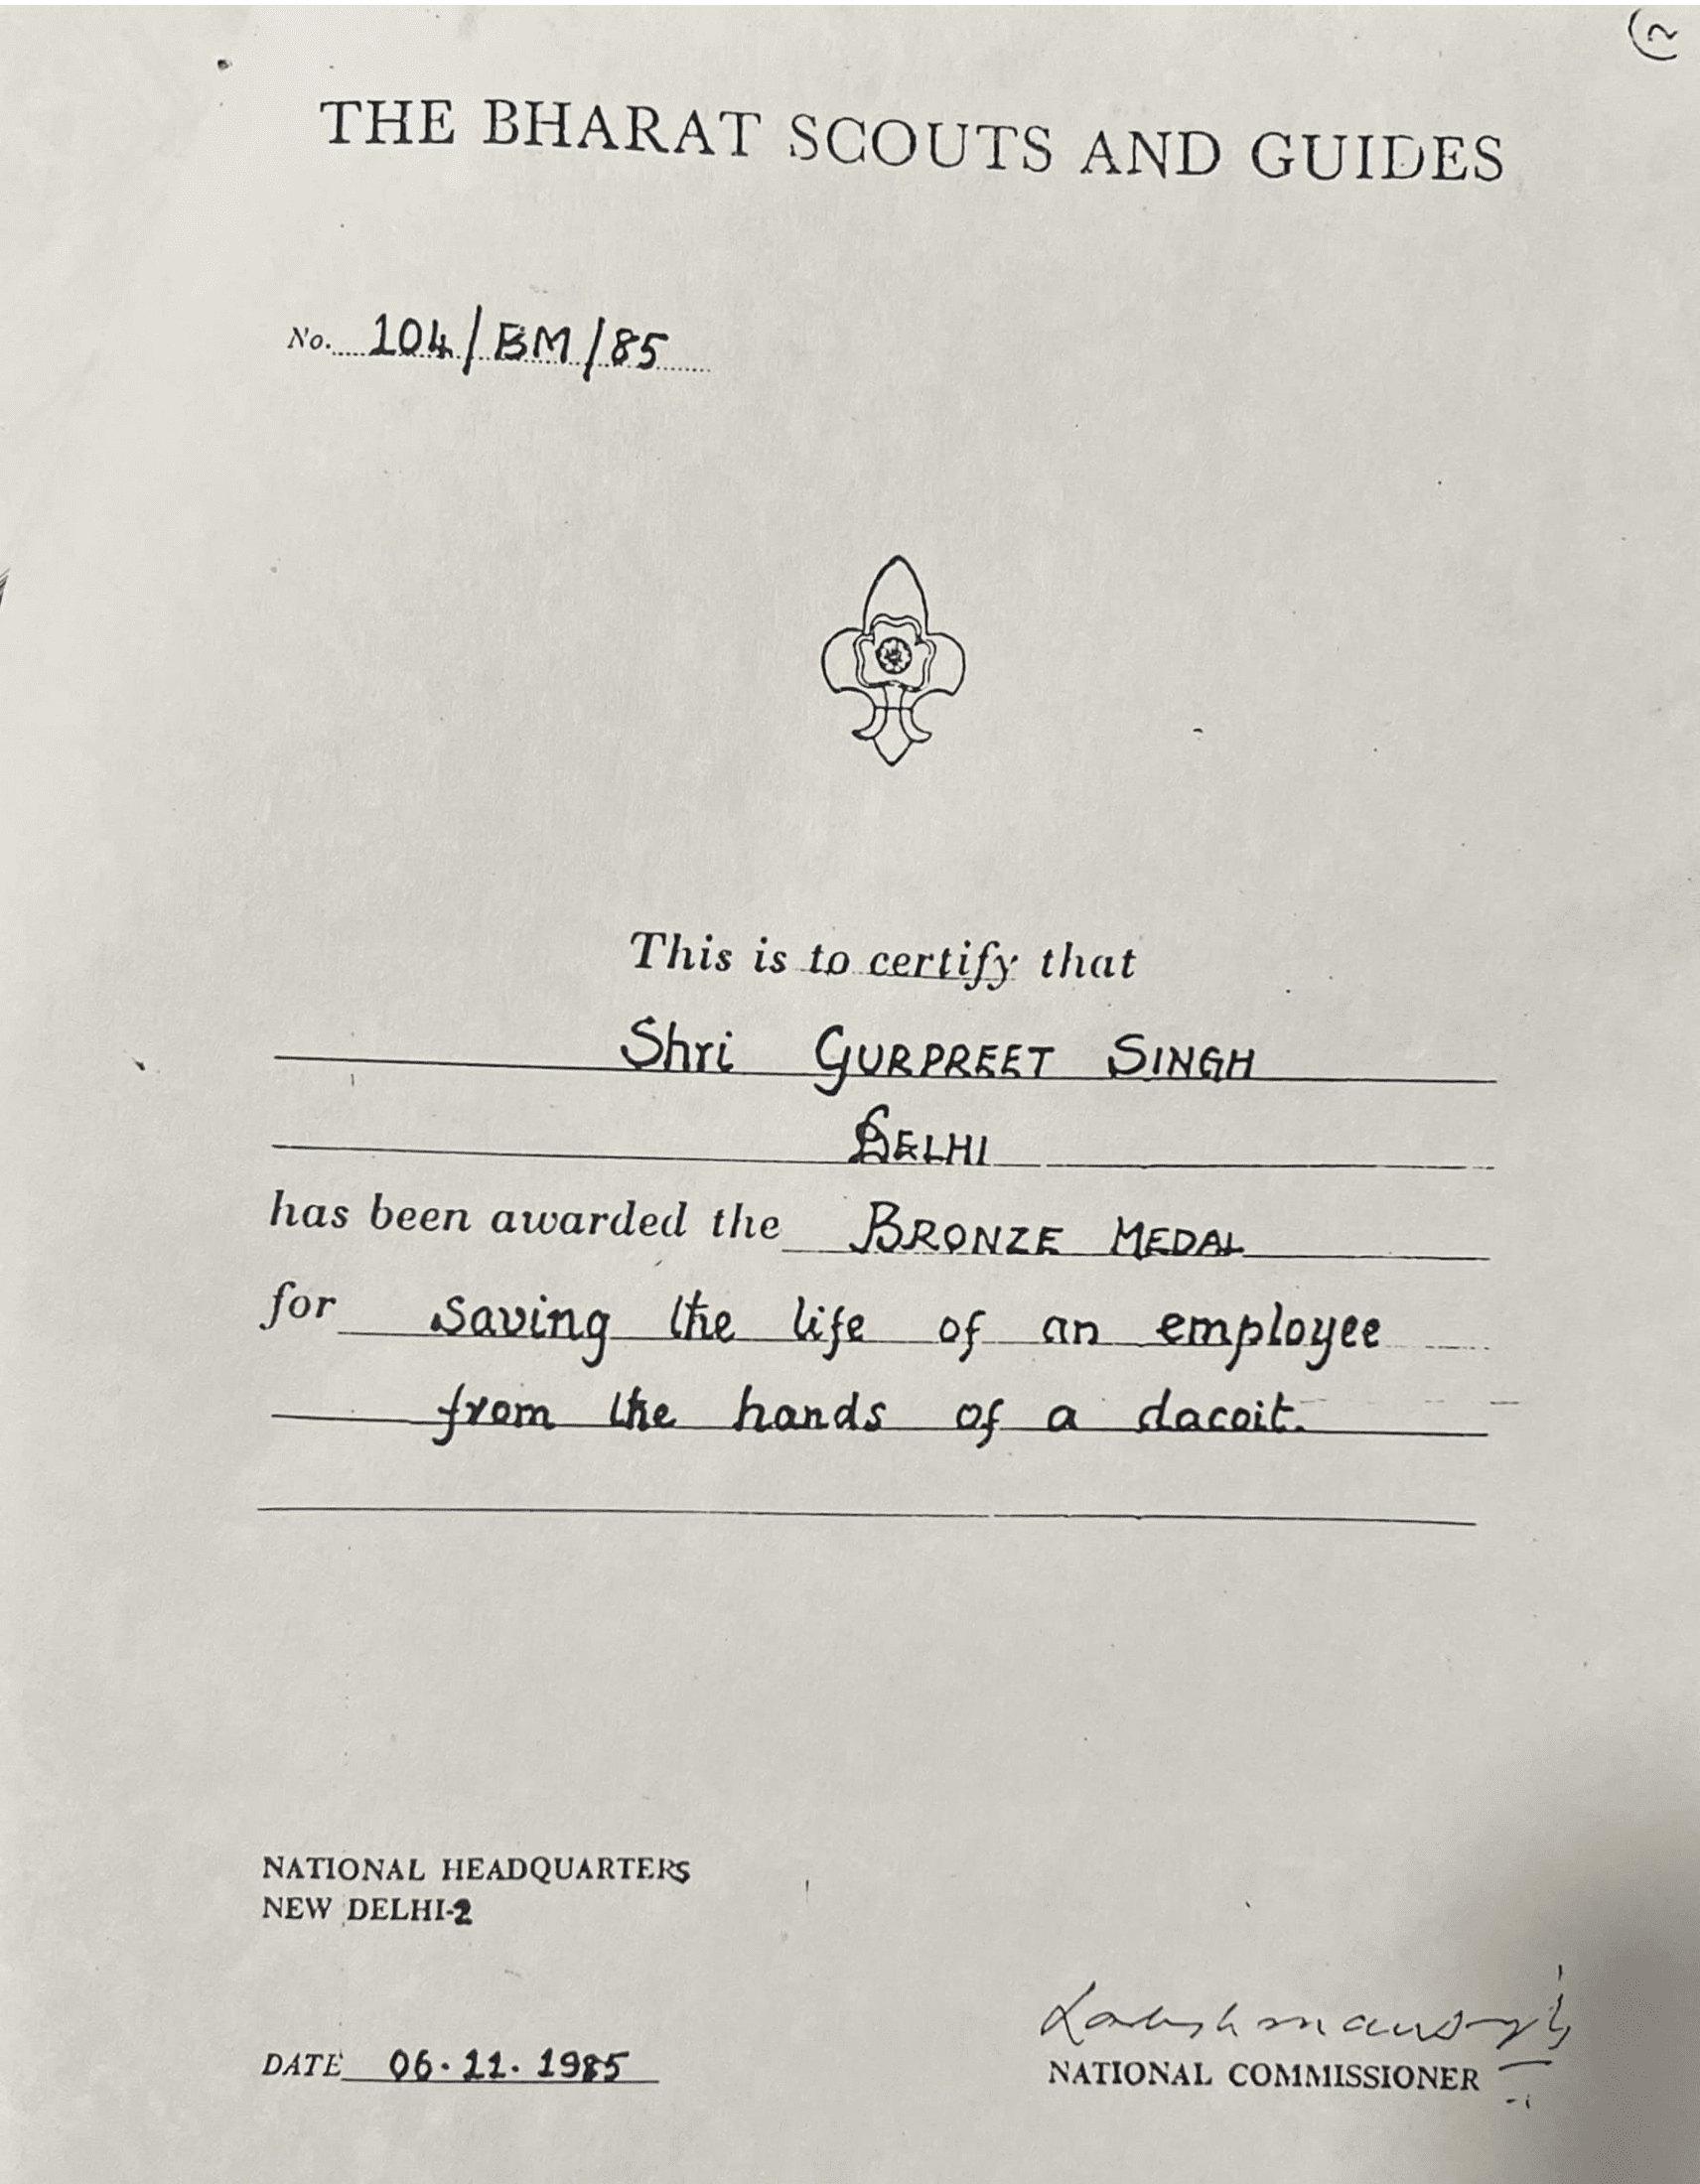 THE BHARAT SCOUTS AND GUIDES
No. 104/BM/85
This is to certify that
Shri GURPREET SINGH
DELHI
has been awarded the BRONZE MEDAL
for saving the life of an employee
from the hands of a dacoit.
NATIONAL HEADQUARTERS
NEW DELHI-2
DATE 06.11.1985
NATIONAL COMMISSIONER